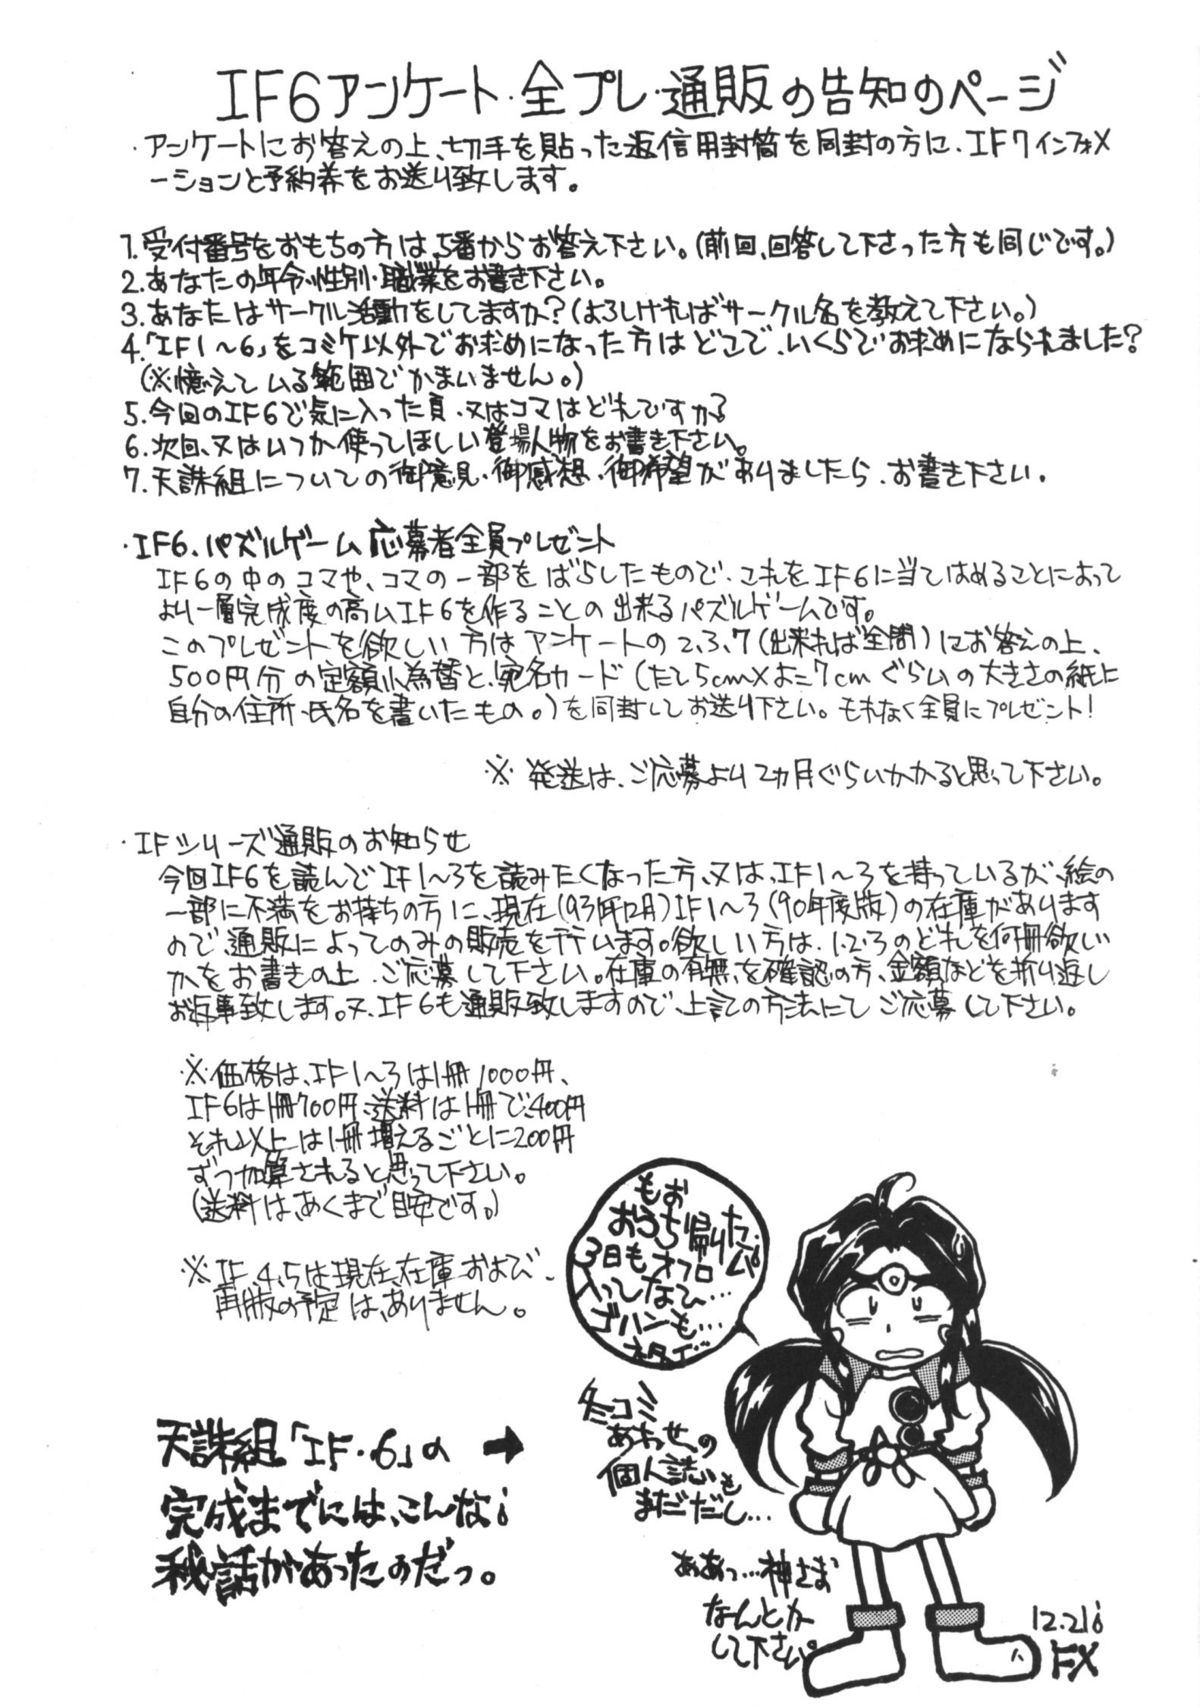 IF6アンケート・全プレ・通販の告知のページ
・アンケートにお答えの上、切手を貼った返信用封筒を同封の方に、IF7インフォメ
ーションと予約券をお送り致します。
1.受付番号をおもちの方は、5番からお答え下さい。(前回、回答して下さった方も同じです。)
2.あなたの年令・性別・職業をお書き下さい。
3.あなたはサークル活動をしてますか?(よろしければサークル名を教えて下さい。)
4.「IF1〜6」をコミケ以外でお求めになった方はどこで、いくらでお求めになられました?
(※憶えている範囲でかまいません。)
5.今回のIF6で気に入った頁、又はコマはどれですか?
6.次回、又はいつか使ってほしい登場人物をお書き下さい。
7.天誅組についての御意見・御感想・御希望がありましたら、お書き下さい。
・IF6.パズルゲーム応募者全員プレゼント
IF6の中のコマや、コマの一部をばらしたもので、これをIF6に当てはめることによって
より一層完成度の高いIF6を作ることの出来るパズルゲームです。
このプレゼントを欲しい方はアンケートの2、3、7(出来れば全問)にお答えの上、
500円分の定額小為替と、宛名カード(たて5cm×よこ7cmぐらいの大きさの紙に
自分の住所・氏名を書いたもの。)を同封してお送り下さい。もれなく全員にプレゼント!
※発送は、ご応募より2カ月ぐらいかかると思って下さい。
・IFシリーズ通販のお知らせ
今回IF6を読んでIF1〜3を読みたくなった方、又は、IF1〜3を持っているが、絵の
一部に不満をお持ちの方に、現在(93年12月)IF1〜3(90年度版)の在庫があります
ので、通販によってのみの販売を行います。欲しい方は、1・2・3のどれを何冊欲しい
かをお書きの上、ご応募して下さい。在庫の有無を確認の方、金額などを折り返し
お返事致します。又、IF6も通販致しますので、上記の方法にてご応募して下さい。
※価格は、IF1〜3は1冊1000円、
IF6は1冊700円、送料は1冊で、400円
それ以上は1冊増えるごとに200円
ずつ加算されると思って下さい。
(送料は、あくまで目安です。)
※IF、4、5は現在、在庫および、
再版の予定は、ありません。
もお
おうち帰りた〜い
3日もオフロ
入ってないし…
ゴハンも…
冬コミ
あわせの
個人誌も
まだだし…
ああっ…神さま
なんとか
して下さい。
天誅組「IF・6」の→
完成までには、こんな
秘話があったのだっ。
12.21
FX